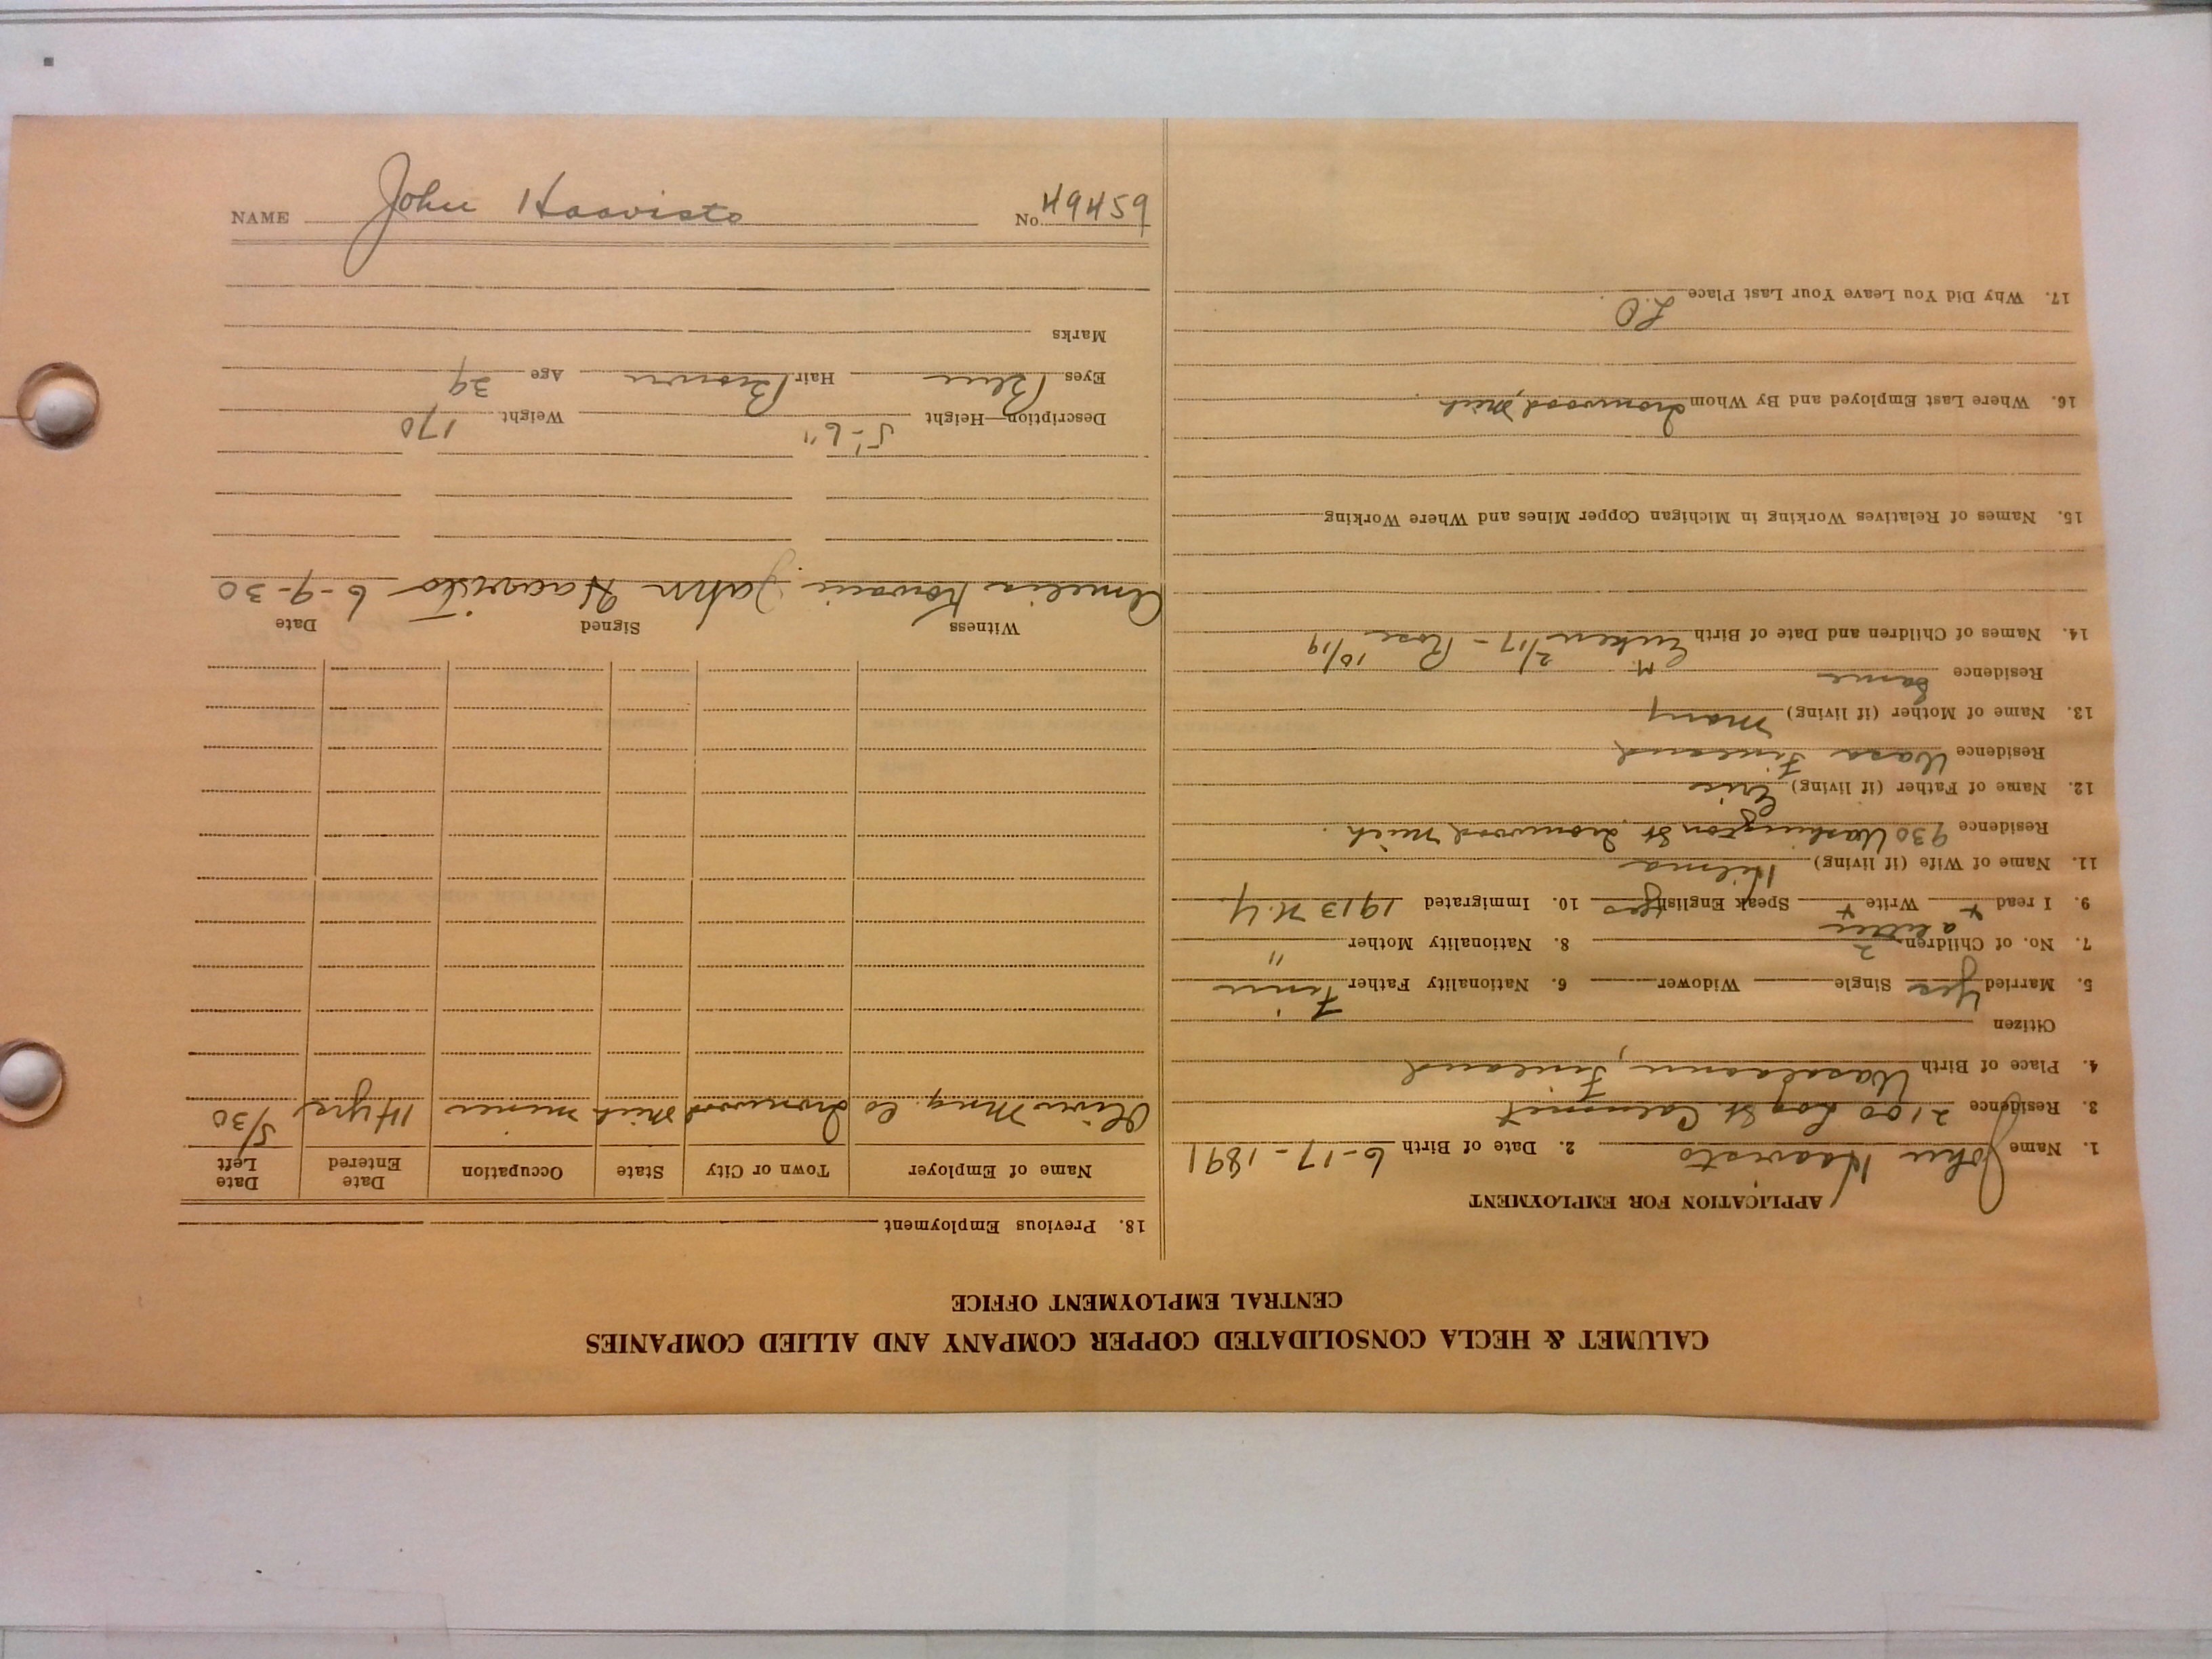 CALUMET & HECLA CONSOLIDATED COPPER COMPANY AND ALLIED COMPANIES
CENTRAL EMPLOYMENT OFFICE
APPLICATION FOR EMPLOYMENT
1. Name John Haavisto 2. Date of Birth 6-17-1891
3. Residence 2100 Log St. Calumet
4. Place of Birth Wasalaani, Finland
Citizen
5. Married Yes Single Widower 6. Nationality Father Finn
7. No. of Children 2 8. Nationality Mother "
a little
9. I read + Write + Speak English yes 10. Immigrated 1913 N.Y.
11. Name of Wife (if living) Hilma
Residence 930 Washington St. Ironwood, Mich.
12. Name of Father (if living) Eric
Residence Wasa Finland
13. Name of Mother (if living) Mary
Residence Same
14. Names of Children and Date of Birth 2/17 - Rose 10/19
15. Names of Relatives Working in Michigan Copper Mines and Where Working
16. Where Last Employed and By Whom Ironwood, Mich.
17. Why Did You Leave Your Last Place L.O.
18. Previous Employment
Name of Employer Town or City State Occupation Date Entered Date Left
Oliver Mng. Co Ironwood Mich miner 14 yrs 5/30
Witness Signed Date
Amelia John Haavisto 6-9-30
Description—Height 5'-6" Weight 170
Eyes Blue Hair Brown Age 39
Marks
NAME John Haavisto No. 49459